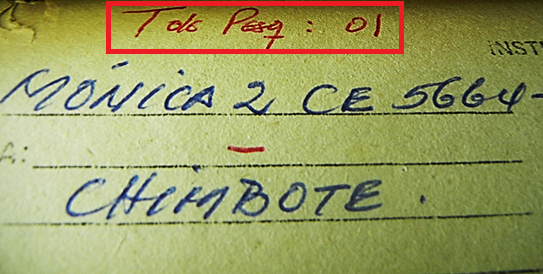 Tdc Pesq: 01
INST
MÓNICA 2 CE 5664-
A:
CHIMBOTE.